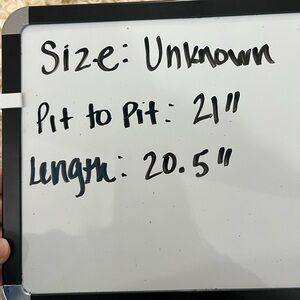 Size: Unknown
Pit to Pit: 21"
Length: 20.5"